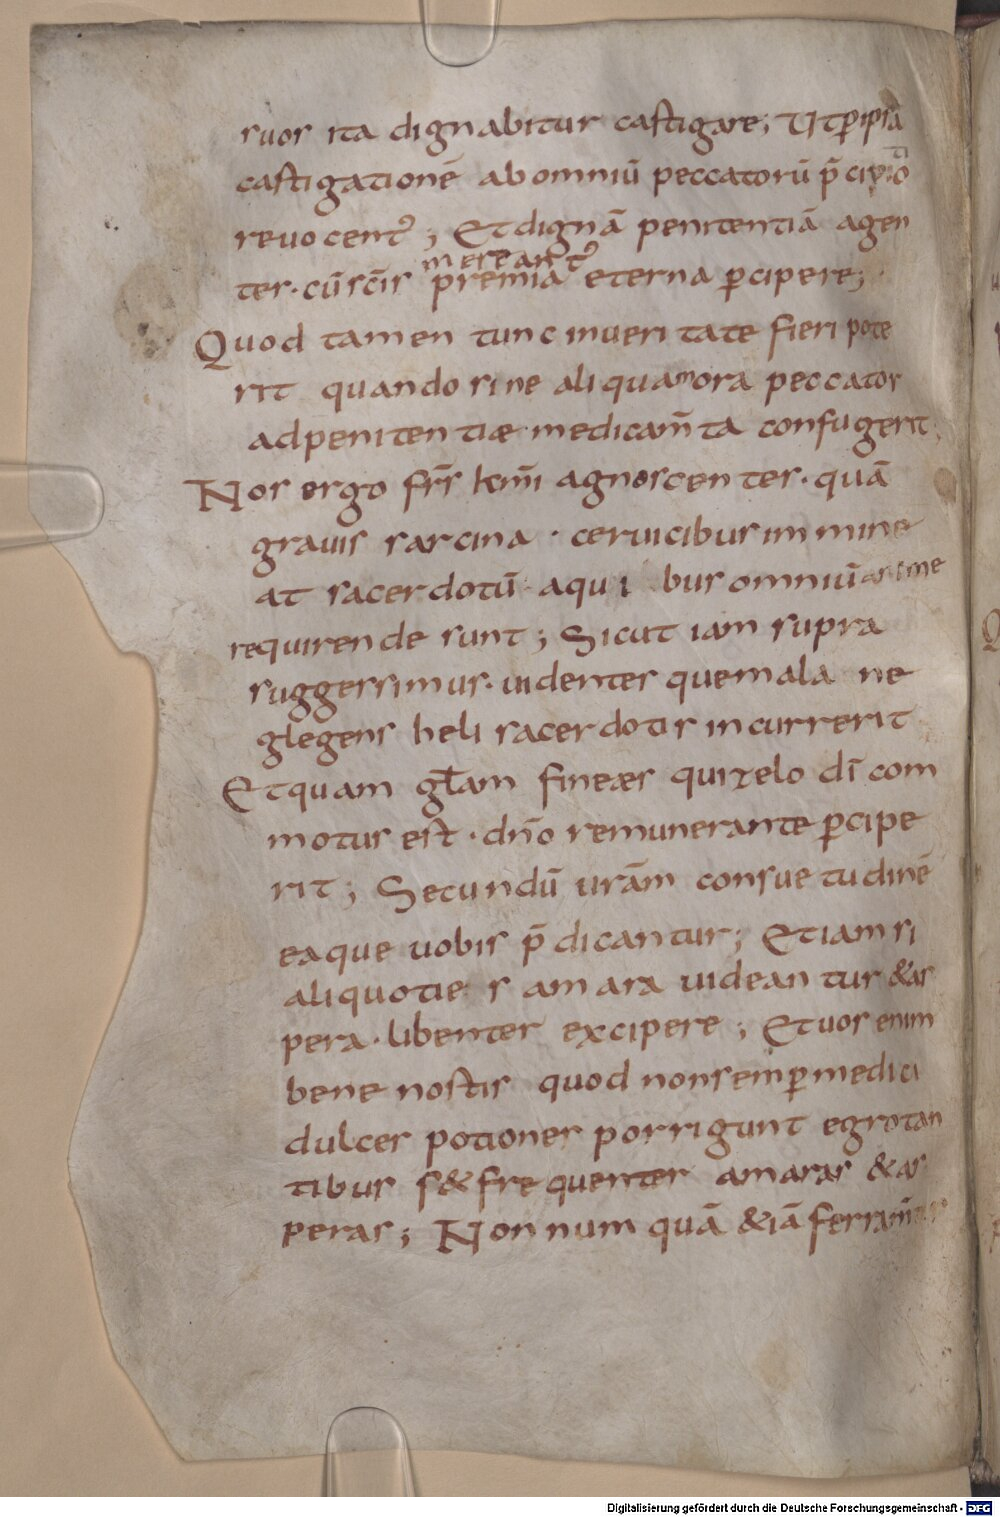 suos ita dignabitur castigare; Ut ꝑ ipsā
castigationē ab omniū peccatorū p̄cipitio
reuocent᷒; Et dignā penitentiā agen
ter. cū sc̄is premia mereant᷒ eterna ꝑcipere;
Quod tamen tunc in ueritate fieri pote
rit quando sine aliqua mora peccator
ad penitentiæ medicam̄ta confugerit;
Nos ergo fr̄s km̄i agnoscentes. quā
grauis sarcina. ceruicibus immine
at sacerdotū. a quibus omniū anime
requirende sunt; Sicut iam supra
suggessimus. uidentes que mala ne
glegens heli sacerdotis incurrerit
Et quam gl̄am finees qui zelo dī com
motus est. dn̄o remunerante ꝑcipe
rit; Secundū urām consuetudinē
ea que uobis p̄dicantur; Etiam si
aliquoties amara uideantur & as
pera. libenter excipere; Et uos enim
bene nostis quod non semꝑ medici
dulces potiones porrigunt egrotan
tibus s& frequenter amaras & as
peras; Non numquā &iā
Digitalisierung gefördert durch die Deutsche Forschungsgemeinschaft - DFG